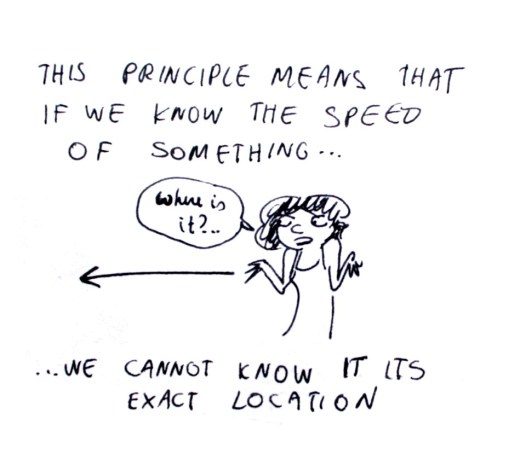 THIS PRINCIPLE MEANS THAT
IF WE KNOW THE SPEED
OF SOMETHING...
Where is
it?..
...WE CANNOT KNOW IT ITS
EXACT LOCATION